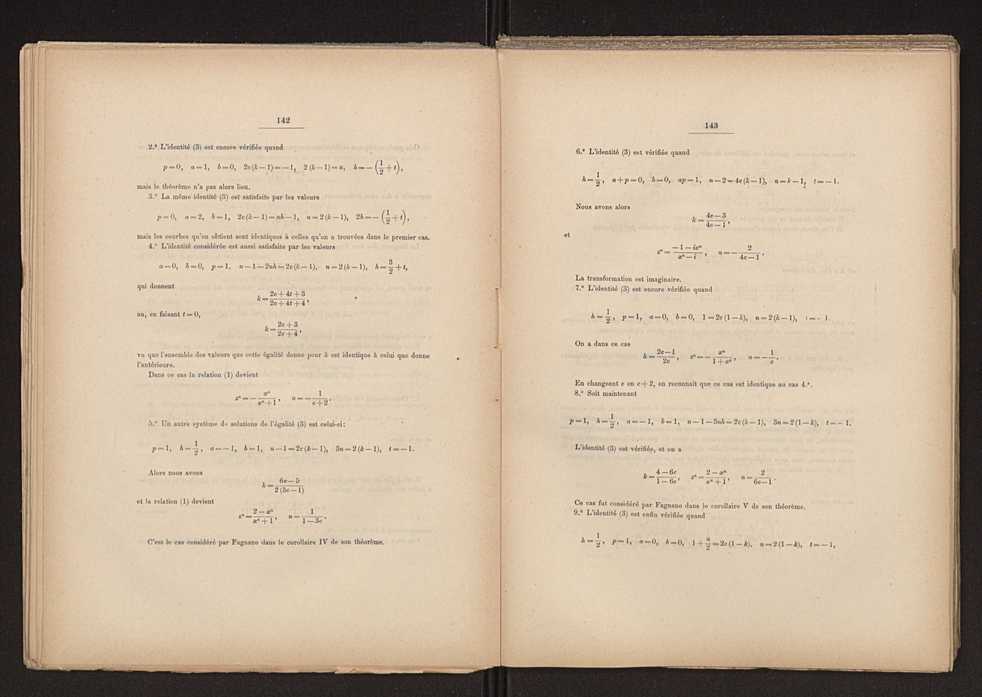 142
2.° L'identité (3) est encore vérifiée quand
p=0, a=1, b=0, 2e(k−1)=−1, 2(k−1)=n, h=−(1/2+t),
mais le théorème n'a pas alors lieu.
3.° La même identité (3) est satisfaite par les valeurs
p=0, a=2, b=1, 2e(k−1)=nh−1, n=2(k−1), 2h=−(1/2+t),
mais les courbes qu'on obtient sont identiques à celles qu'on a trouvées dans le premier cas.
4.° L'identité considérée est aussi satisfaite par les valeurs
a=0, b=0, p=1, n−1−2nh=2e(k−1), n=2(k−1), h=3/2+t,
qui donnent
k=(2e+4t+3)/(2e+4t+4),
ou, en faisant t=0,
k=(2e+3)/(2e+4),
vu que l'ensemble des valeurs que cette égalité donne pour k est identique à celui que donne
l'antérieure.
Dans ce cas la relation (1) devient
zⁿ=−xⁿ/(xⁿ+1), n=−1/(e+2).
5.° Un autre système de solutions de l'égalité (3) est celui-ci:
p=1, h=1/2, a=−1, b=1, n−1=2e(k−1), 3n=2(k−1), t=−1.
Alors nous avons
k=(6e−5)/(2(3e−1))
et la relation (1) devient
zⁿ=(2−xⁿ)/(xⁿ+1), n=1/(1−3e).
C'est le cas considéré par Fagnano dans le corollaire IV de son théorème.
143
6.° L'identité (3) est vérifiée quand
h=1/2, a+p=0, b=0, ap=1, n−2=4e(k−1), n=k−1, t=−1.
Nous avons alors
k=(4e−3)/(4e−1),
et
zⁿ=(−1−ixⁿ)/(xⁿ−i), n=−2/(4e−1).
La transformation est imaginaire.
7.° L'identité (3) est encore vérifiée quand
h=1/2, p=1, a=0, b=0, 1=2e(1−k), n=2(k−1), t=−1.
On a dans ce cas
k=(2e−1)/2e, zⁿ=−xⁿ/(1+xⁿ), n=−1/e.
En changeant e en e+2, on reconnaît que ce cas est identique au cas 4.°.
8.° Soit maintenant
p=1, h=1/2, a=−1, b=1, n−1−3nh=2e(k−1), 3n=2(1−k), t=−1.
L'identité (3) est vérifiée, et on a
k=(4−6e)/(1−6e), zⁿ=(2−xⁿ)/(xⁿ+1), n=2/(6e−1).
Ce cas fut considéré par Fagnano dans le corollaire V de son théorème.
9.° L'identité (3) est enfin vérifiée quand
h=1/2, p=1, a=0, b=0, 1+n/2=2e(1−k), n=2(1−k), t=−1,